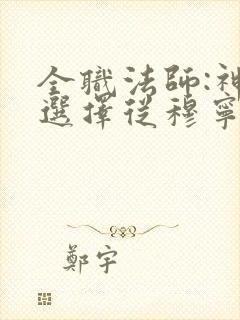 全職法師:神
選擇從穆寧
鄭宇